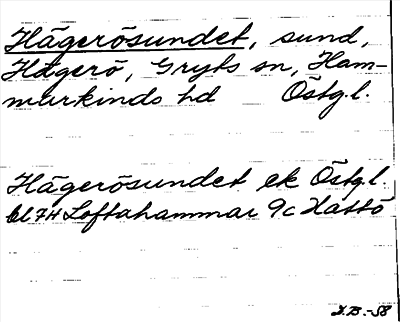 Hägerösundet, sund,
Hägerö, Gryts sn, Ham-
markinds hd Östg.l.
Hägerösundet ek Östg.l.
bl 74 Loftahammar 9c Hattö
I.B.-58